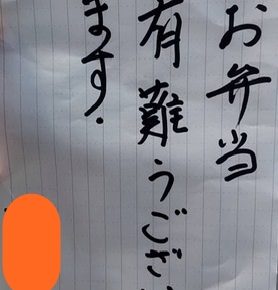 お弁当
有難うござい
ます.